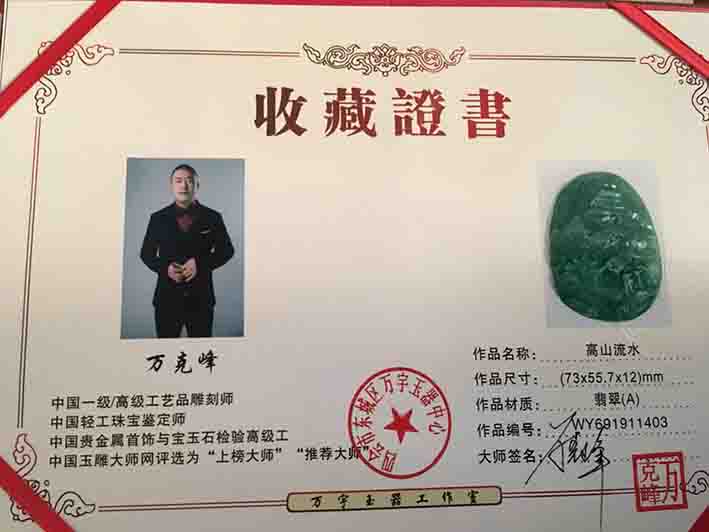 收藏證書
万克峰
中国一级/高级工艺品雕刻师
中国轻工珠宝鉴定师
中国贵金属首饰与宝玉石检验高级工
中国玉雕大师网评选为“上榜大师”“推荐大师”
作品名称：高山流水
作品尺寸：(73x55.7x12)mm
作品材质：翡翠(A)
作品编号：WY691911403
大师签名：
四会市东城区万宇玉器中心
万克峰
万宇玉器工作室